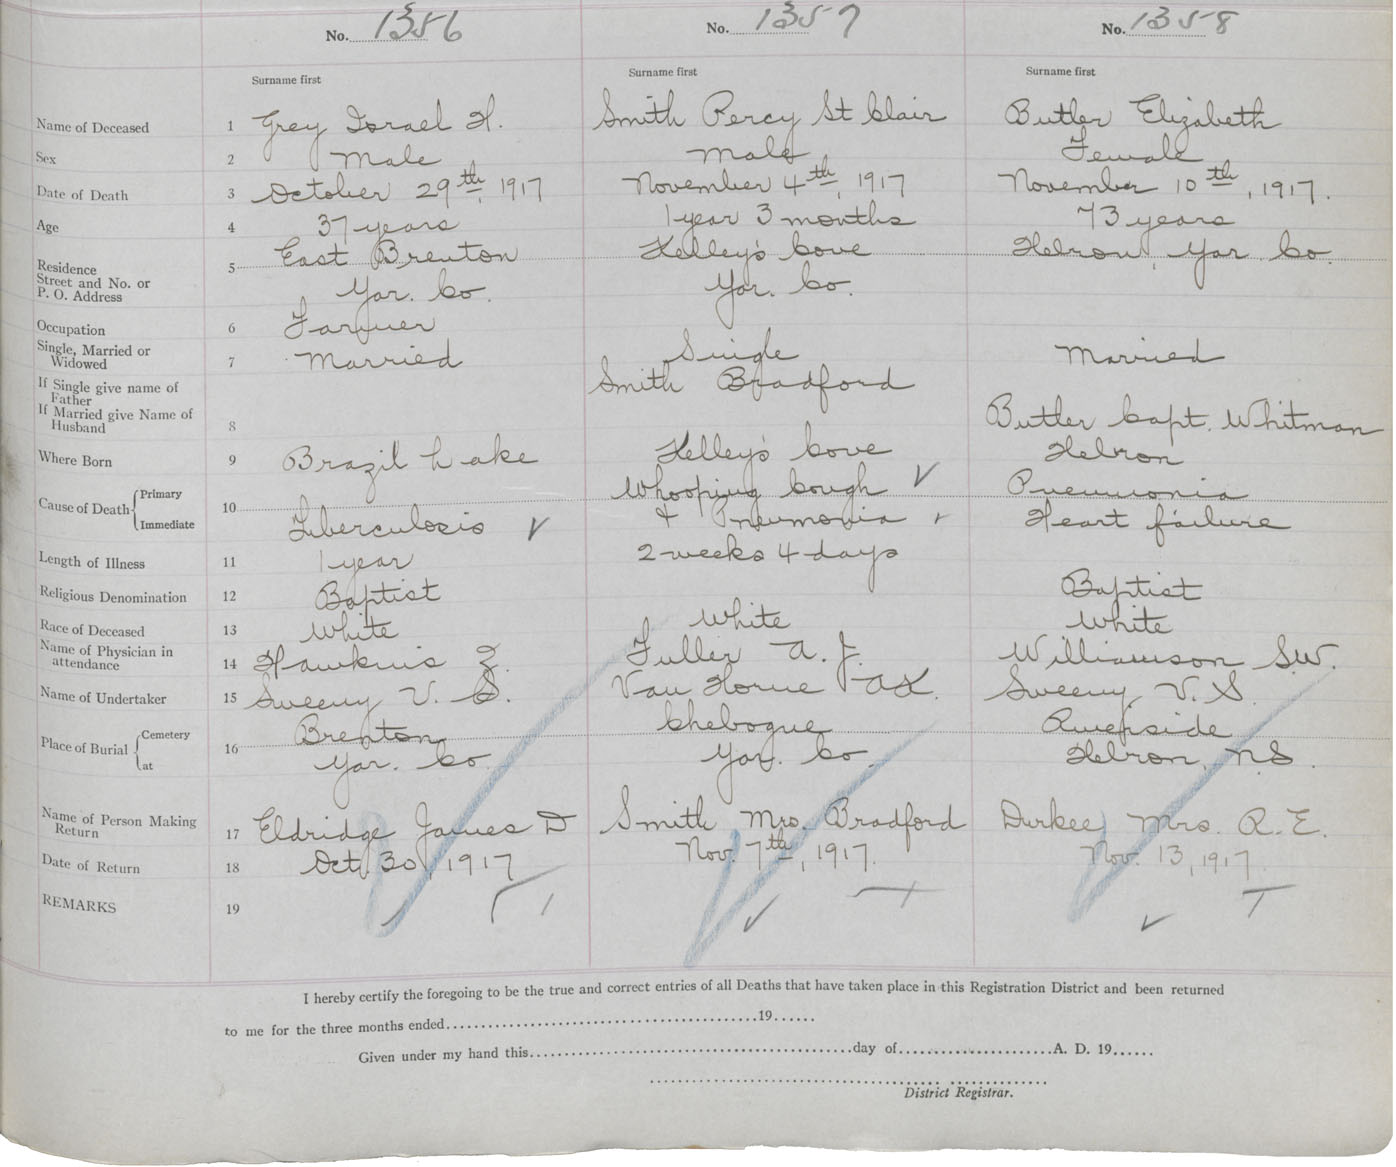 No. 1356 No. 1357 No. 1358
Surname first Surname first Surname first
Name of Deceased 1 Grey Israel H. Smith Percy St Clair Butler Elizabeth
Sex 2 Male Male Female
Date of Death 3 October 29th, 1917 November 4th, 1917 November 10th, 1917.
Age 4 37 years 1 year 3 months 73 years
Residence
Street and No. or
P. O. Address
5 East Brenton Kelley's Cove Hebron, Yar Co.
Yar. Co. Yar. Co.
Occupation 6 Farmer
Single, Married or
Widowed
7 Married Single Married
If Single give name of
Father
Smith Bradford
If Married give Name of
Husband
8 Butler Capt. Whitman
Where Born 9 Brazil Lake Kelley's Cove Hebron
Cause of Death Primary Whooping Cough Pneumonia
10
Immediate Tuberculosis & Pneumonia Heart failure
Length of Illness 11 1 year 2 weeks 4 days
Religious Denomination 12 Baptist Baptist
Race of Deceased 13 White White White
Name of Physician in
attendance
14 Hawkins Z. Fuller A. J. Williamson S.W.
Name of Undertaker 15 Sweeny V. S. Van Horne A K. Sweeny V. S.
Place of Burial Cemetery Brenton Chebogue Riverside
16
at Yar. Co. Yar. Co. Hebron, N.S.
Name of Person Making
Return
17 Eldridge James D Smith Mrs. Bradford Durkee, Mrs. R. E.
Date of Return 18 Oct 30, 1917 Nov. 7th, 1917. Nov. 13, 1917.
REMARKS 19
I hereby certify the foregoing to be the true and correct entries of all Deaths that have taken place in this Registration District and been returned
to me for the three months ended 19
Given under my hand this day of A. D. 19
District Registrar.